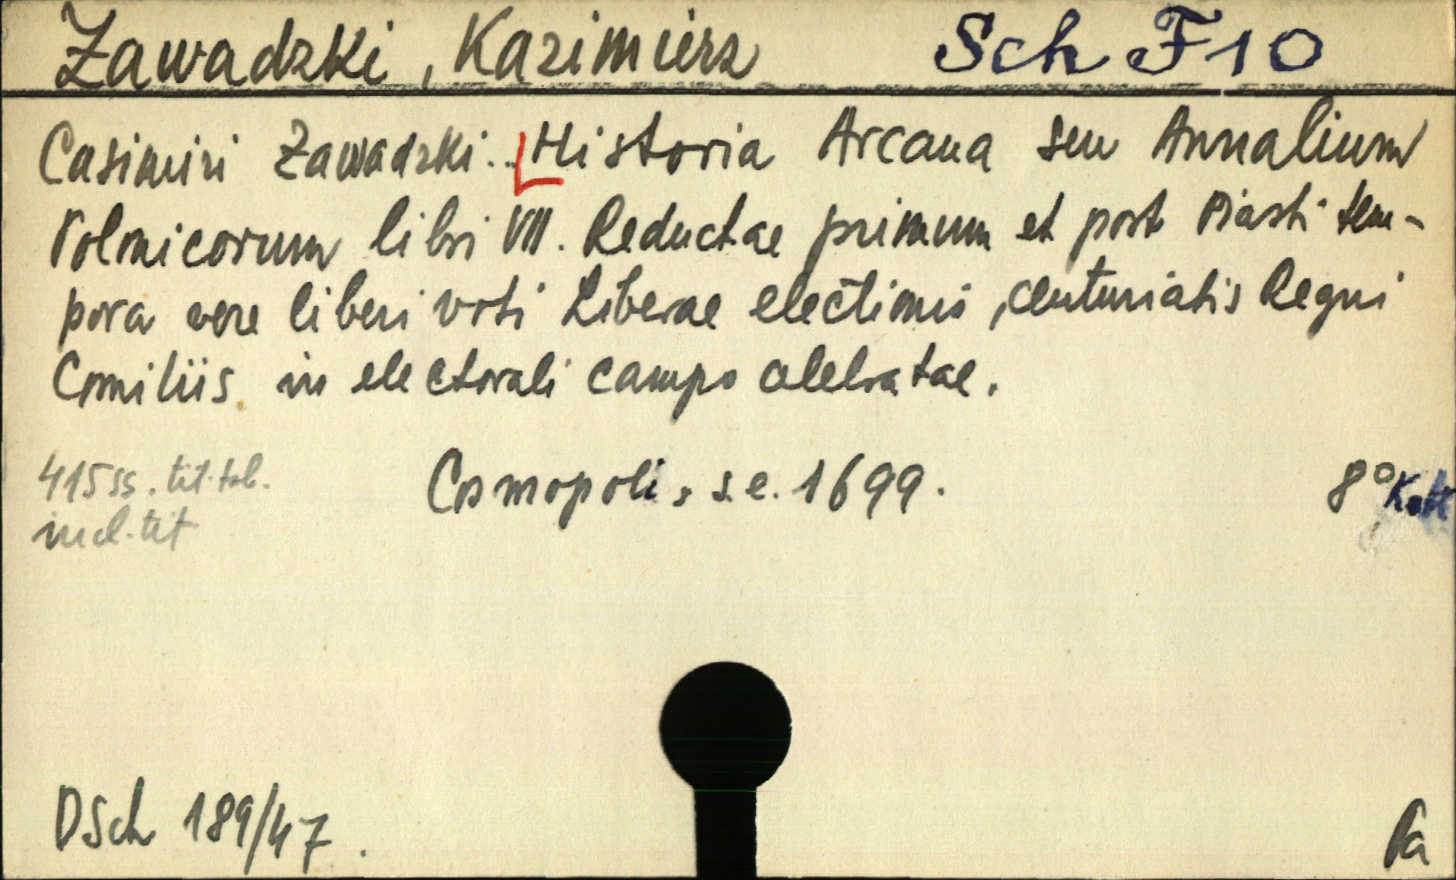 Zawadzki, Kazimierz Sch F 10
Casimiri Zawadzki... Historia Arcana seu Annalium
Polonicorum libri VII. Reductae primum et post Piasti tem-
pora vere liberi voti Liberae electionis, centuriatis Regni
Comitiis in electorali campo celebratae.
415 ss. tit. tab. Cosmopoli, s.e. 1699. 8° Katt
incl. tit
DSch 189/47. Pa